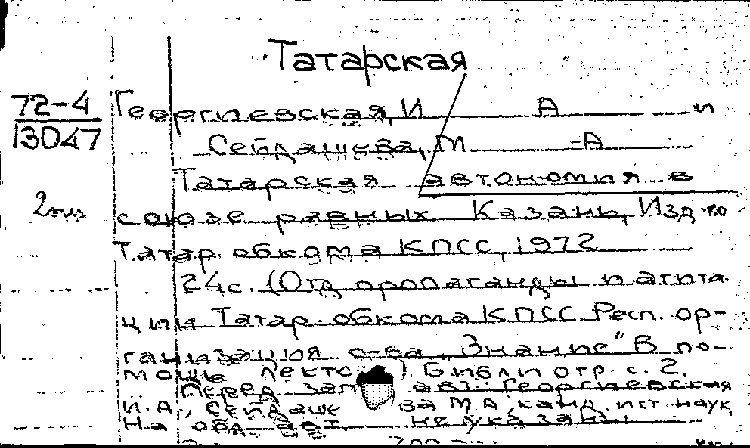 Татарская
72-4
13047
Георгиевская, И А и
Сейдашева, М -А
Татарская автономия в
2экз
союзе равных Казань, Изд-во
Татар. обкома КПСС, 1972
24с. (Отд пропаганды и агита-
ции Татар. обкома КПСС Респ. ор-
ганизация о-ва „Знание" В по-
мощь лекто ) Библиогр. с. 2.
Перед загл авт: Георгиевская
И. А., Сейдаше ва М А, канд. ист наук
На обл. авт. не указаны